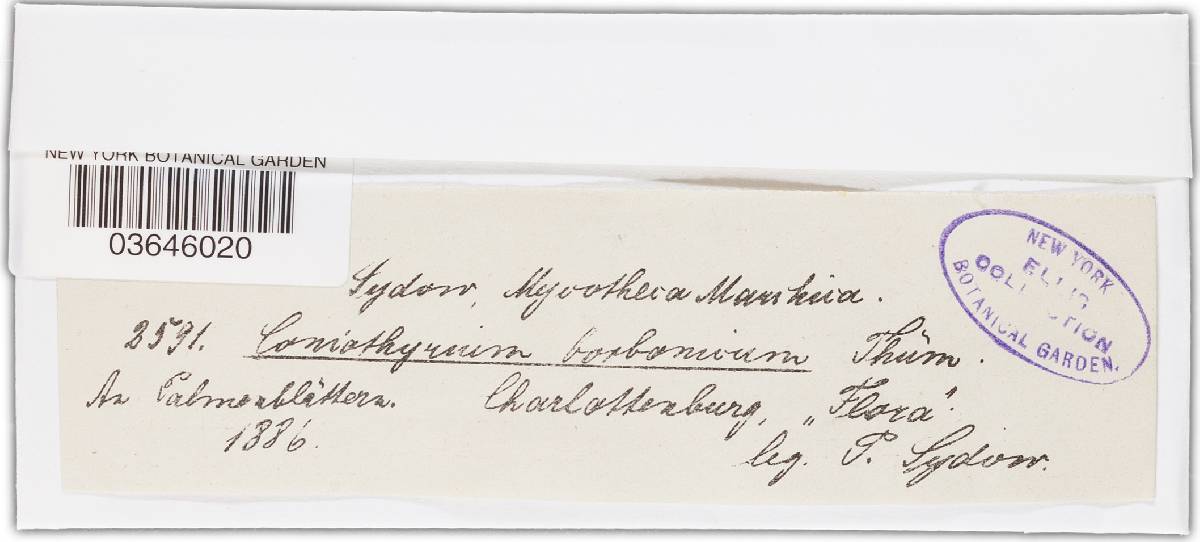 NEW YORK BOTANICAL GARDEN
03646020
NEW YORK
ELLIS
COLLECTION
BOTANICAL GARDEN.
Sydow, Mycotheca Marchica.
2591. Coniothyrium borbonicum Thüm.
An Palmenblättern. Charlottenburg, „Flora“.
1886. leg. P. Sydow.